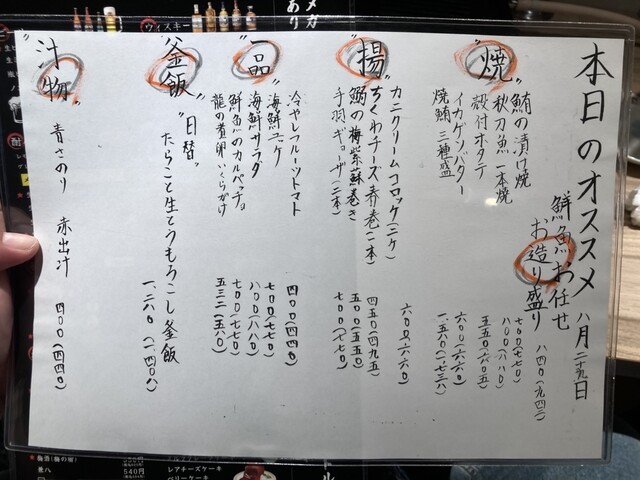 本日のオススメ 八月二十九日
鮮魚お任せ
お造り盛り 八四〇(九二四)
"焼"
鮪の漬け焼 七〇〇(七七〇)
秋刀魚一本焼 八〇〇(八八〇)
殻付ホタテ 五五〇(六〇五)
イカゲソバター 六〇〇(六六〇)
焼鯖三種盛 一、五八〇(一、七三八)
"揚"
カニクリームコロッケ(二ケ) 六〇〇(六六〇)
ちくわチーズ春巻(一本) 四五〇(四九五)
鰯の梅紫蘇巻き 五〇〇(五五〇)
手羽ギョーザ(二本) 七〇〇(七七〇)
"一品"
冷やしフルーツトマト 四〇〇(四四〇)
海鮮ユッケ 七〇〇(七七〇)
海鮮サラダ 八〇〇(八八〇)
鮮魚のカルパッチョ 七〇〇(七七〇)
龍の煮卵いくらがけ
"釜飯"
"日替"
たらこと生とうもろこし釜飯
一、二八〇(一、四〇八)
"汁物"
青さのり 赤出汁 四〇〇(四四〇)
ウィスキー
メガ
あり
梅酒(梅の宿)
兼八
540円
レアチーズケーキ
ベリーケーキ